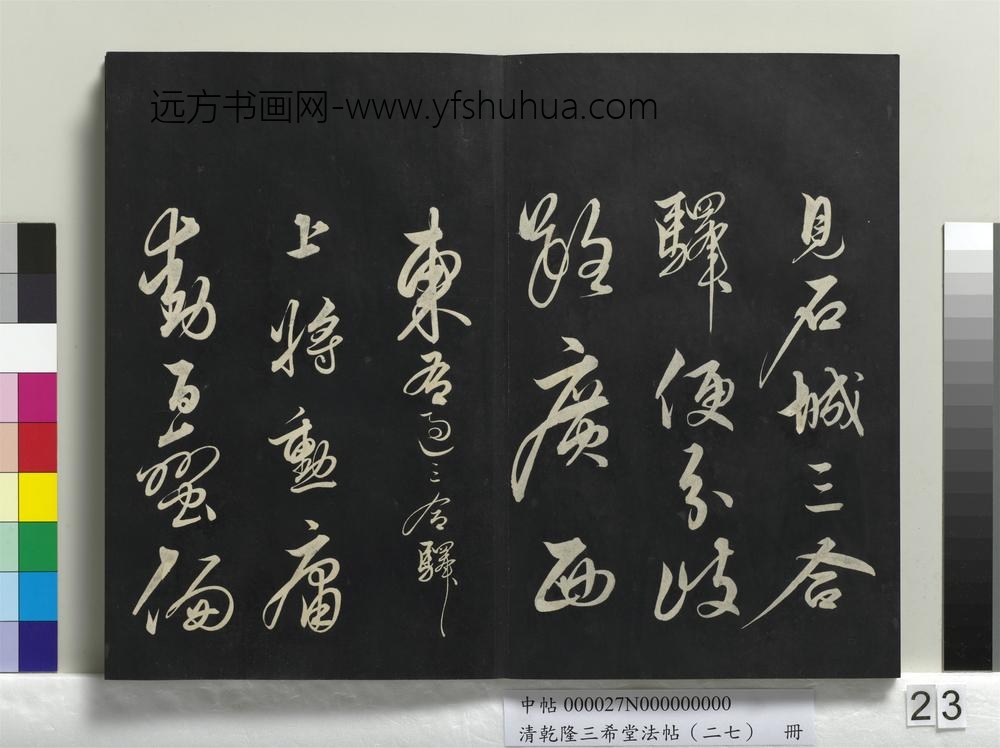 远方书画网-www.yfshuhua.com
見石城三合
驛便分歧
路廣西
東右過三合驛
上將勳庸
動百蠻偏
中帖000027N000000000
清乾隆三希堂法帖（二七） 冊
23